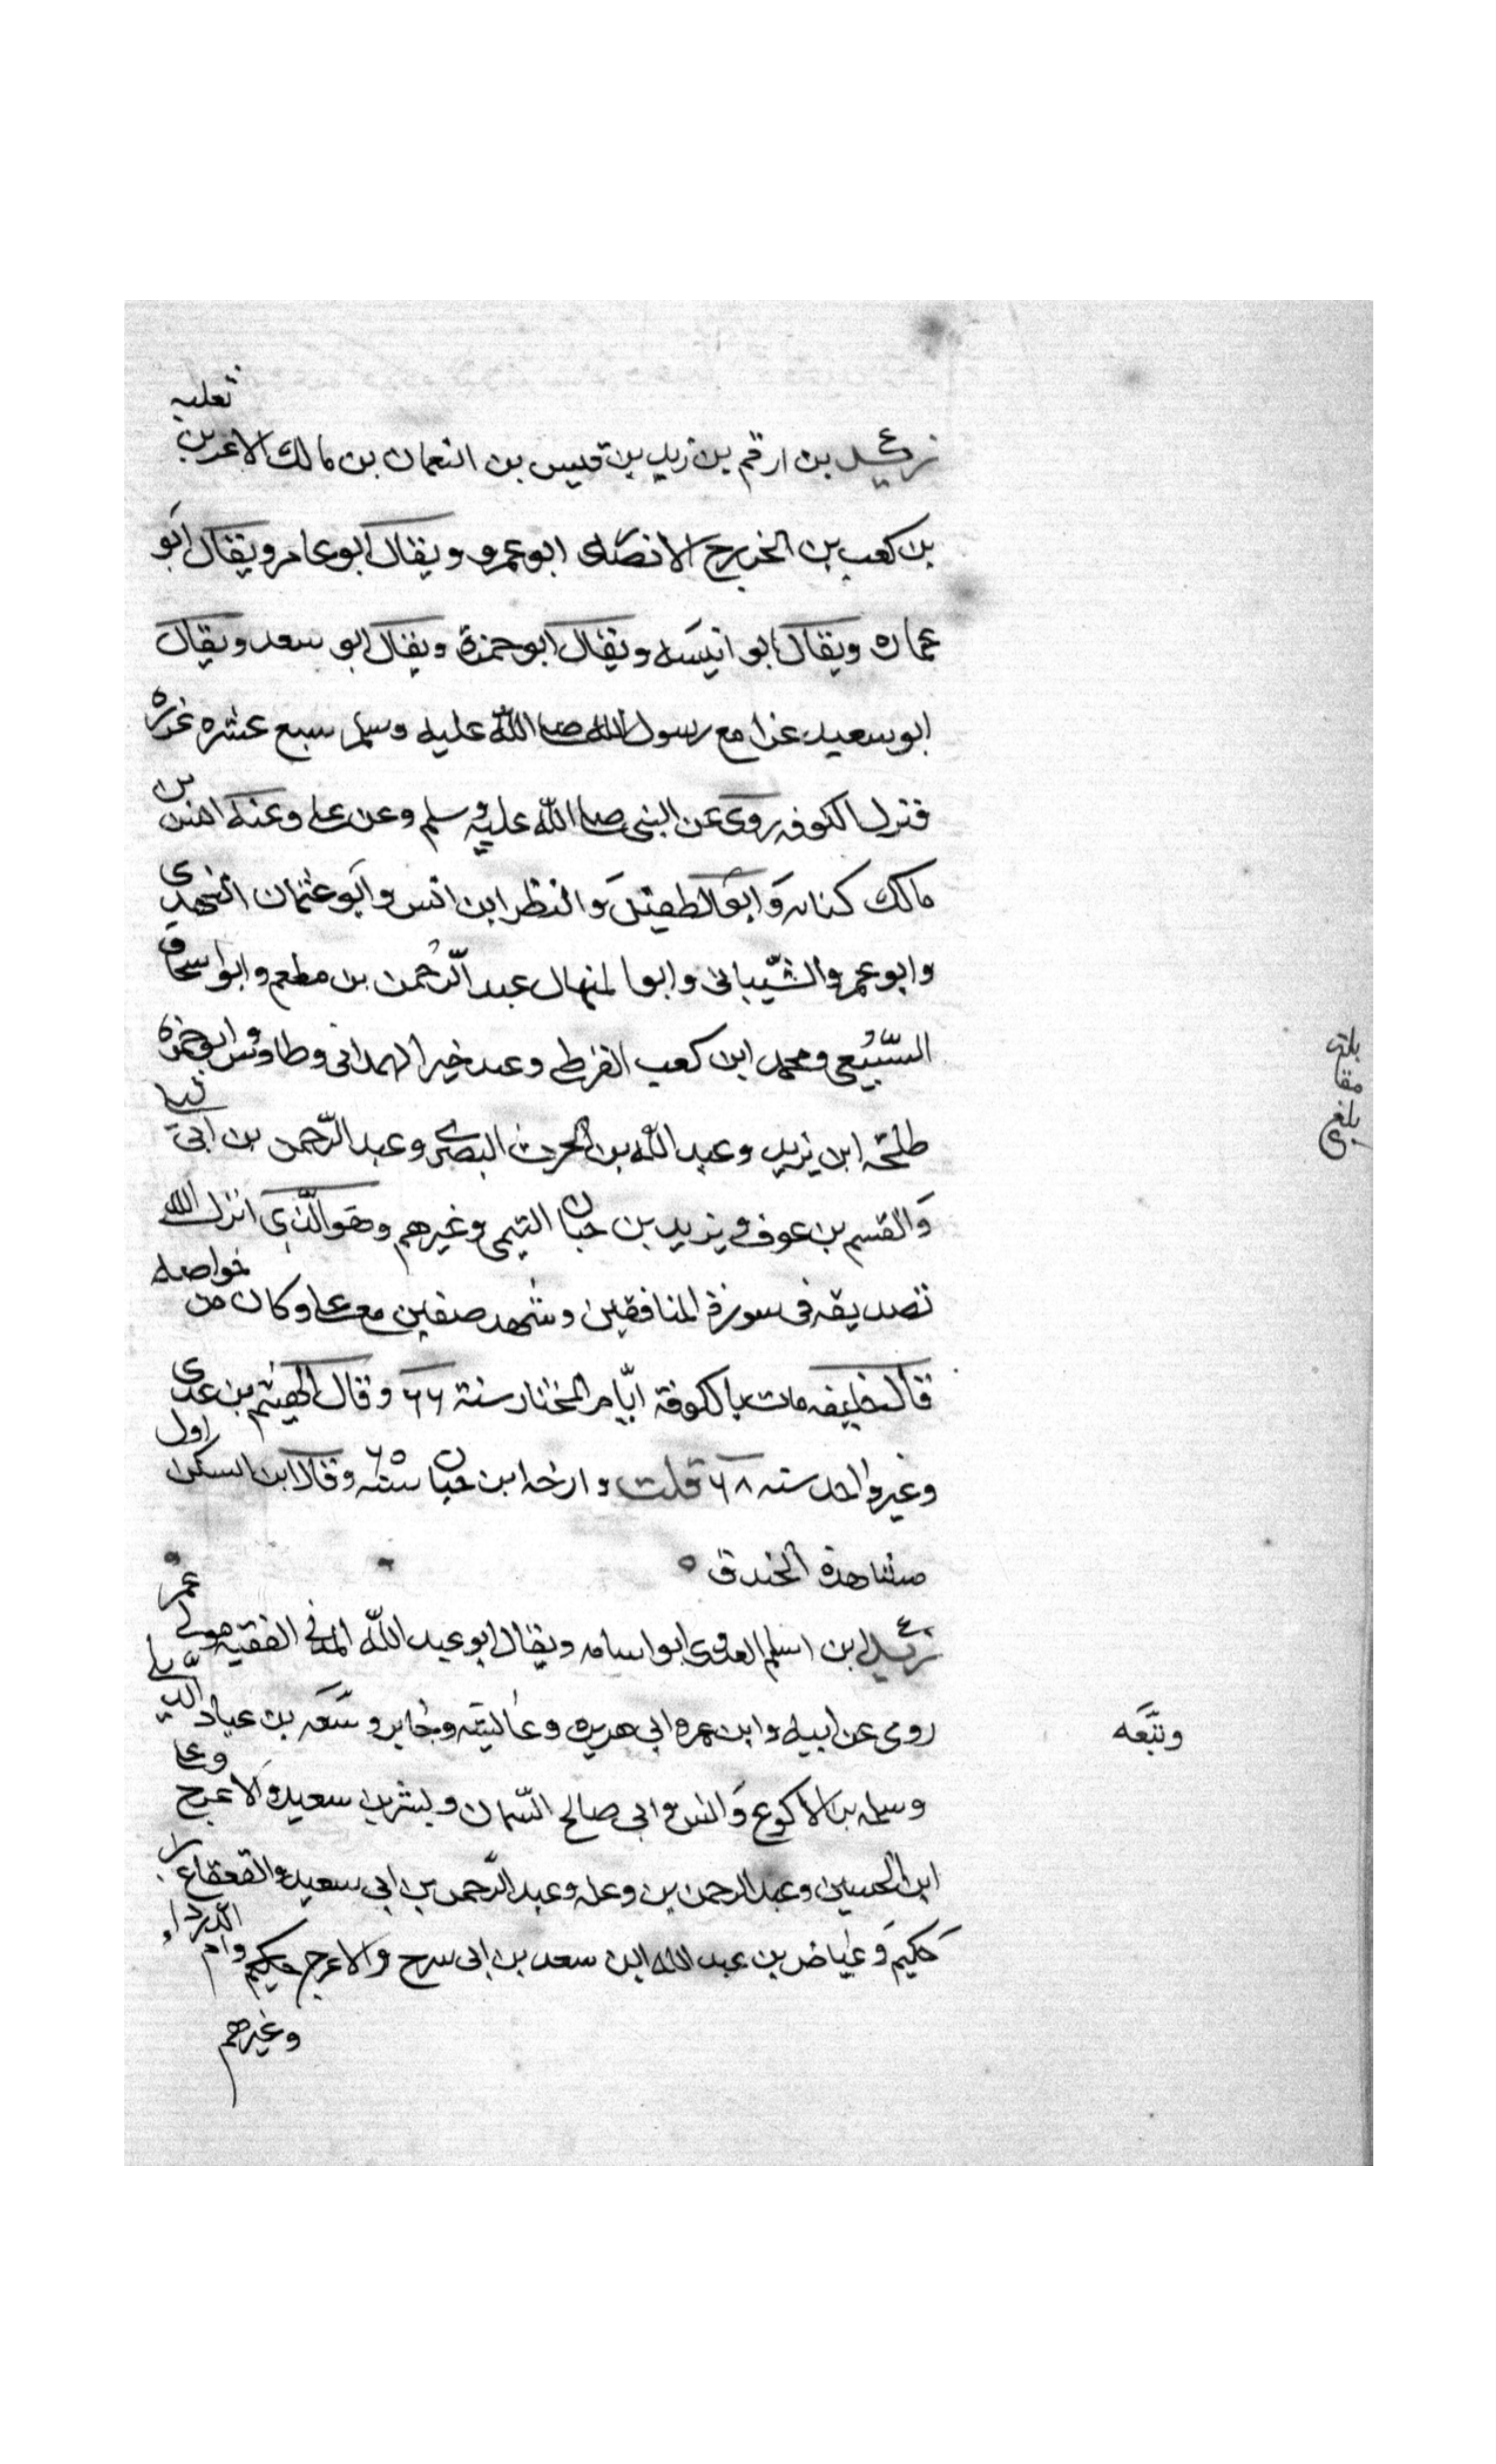 زيد بن ارقم بن زيد بن قيس بن النعمان بن مالك الاغر بن ثعلبه
بن كعب بن الخزرج الانصاى ابو عمرو ويقال ابو عامر ويقال ابو
عماره ويقال ابو انيسه ويقال ابو حمزة ويقال ابو سعد ويقال
ابو سعيد غزا مع رسول الله صلى الله عليه وسلم سبع عشره غزوه
فنزل الكوفه روى عن النبى صلى الله عليه وسلم وعن على وعنه انس بن
مالك كتابه وابو الطفيل والنظر ابن انس وابو عثمان النهدى
وابو عمرو الشيبانى وابو المنهال عبد الرحمن بن مطعم وابو اسحاق
السبيعى ومحمد ابن كعب القرظى وعبد خير الهمدانى وطاوس وابو حمزه
طلحه ابن يزيد وعبد الله بن الحرث البصرى وعبد الرحمن بن ابى ليلى
والقسم بن عوف ويزيد بن حبان التيمى وغيرهم وهو الذى انزل الله
تصديقه فى سورة المنافقين وشهد صفين مع على وكان من خواصه
قال خليفه مات بالكوفة ايام المختار سنة ٦٦ وقال الهيثم بن عدى
وغير واحد سنه ٦٨ قلت وارخه ابن حبان سنه ٦٥ وقال ابن السكن اول
مشاهدة الخندق
زيد ابن اسلم العدوى ابو اسامه ويقال ابو عبد الله المدنى الفقيه مولى عمر
روى عن ابيه وابن عمر وابى هريره وعائشه وجابر وربيعه بن عباد الديلى
وربيعه
وسلمه بن الاكوع وانس وابى صالح السمان وبسر بن سعيد والاعرج وعلى
ابن الحسين وعبد الرحمن بن وعله وعبد الرحمن بن ابى سعيد والقعقاع بن
حكيم وعياض بن عبد الله ابن سعد بن ابى سرح والاعرج حكيم وام الدرداء
وغيرهم
بلغ
مقابلة